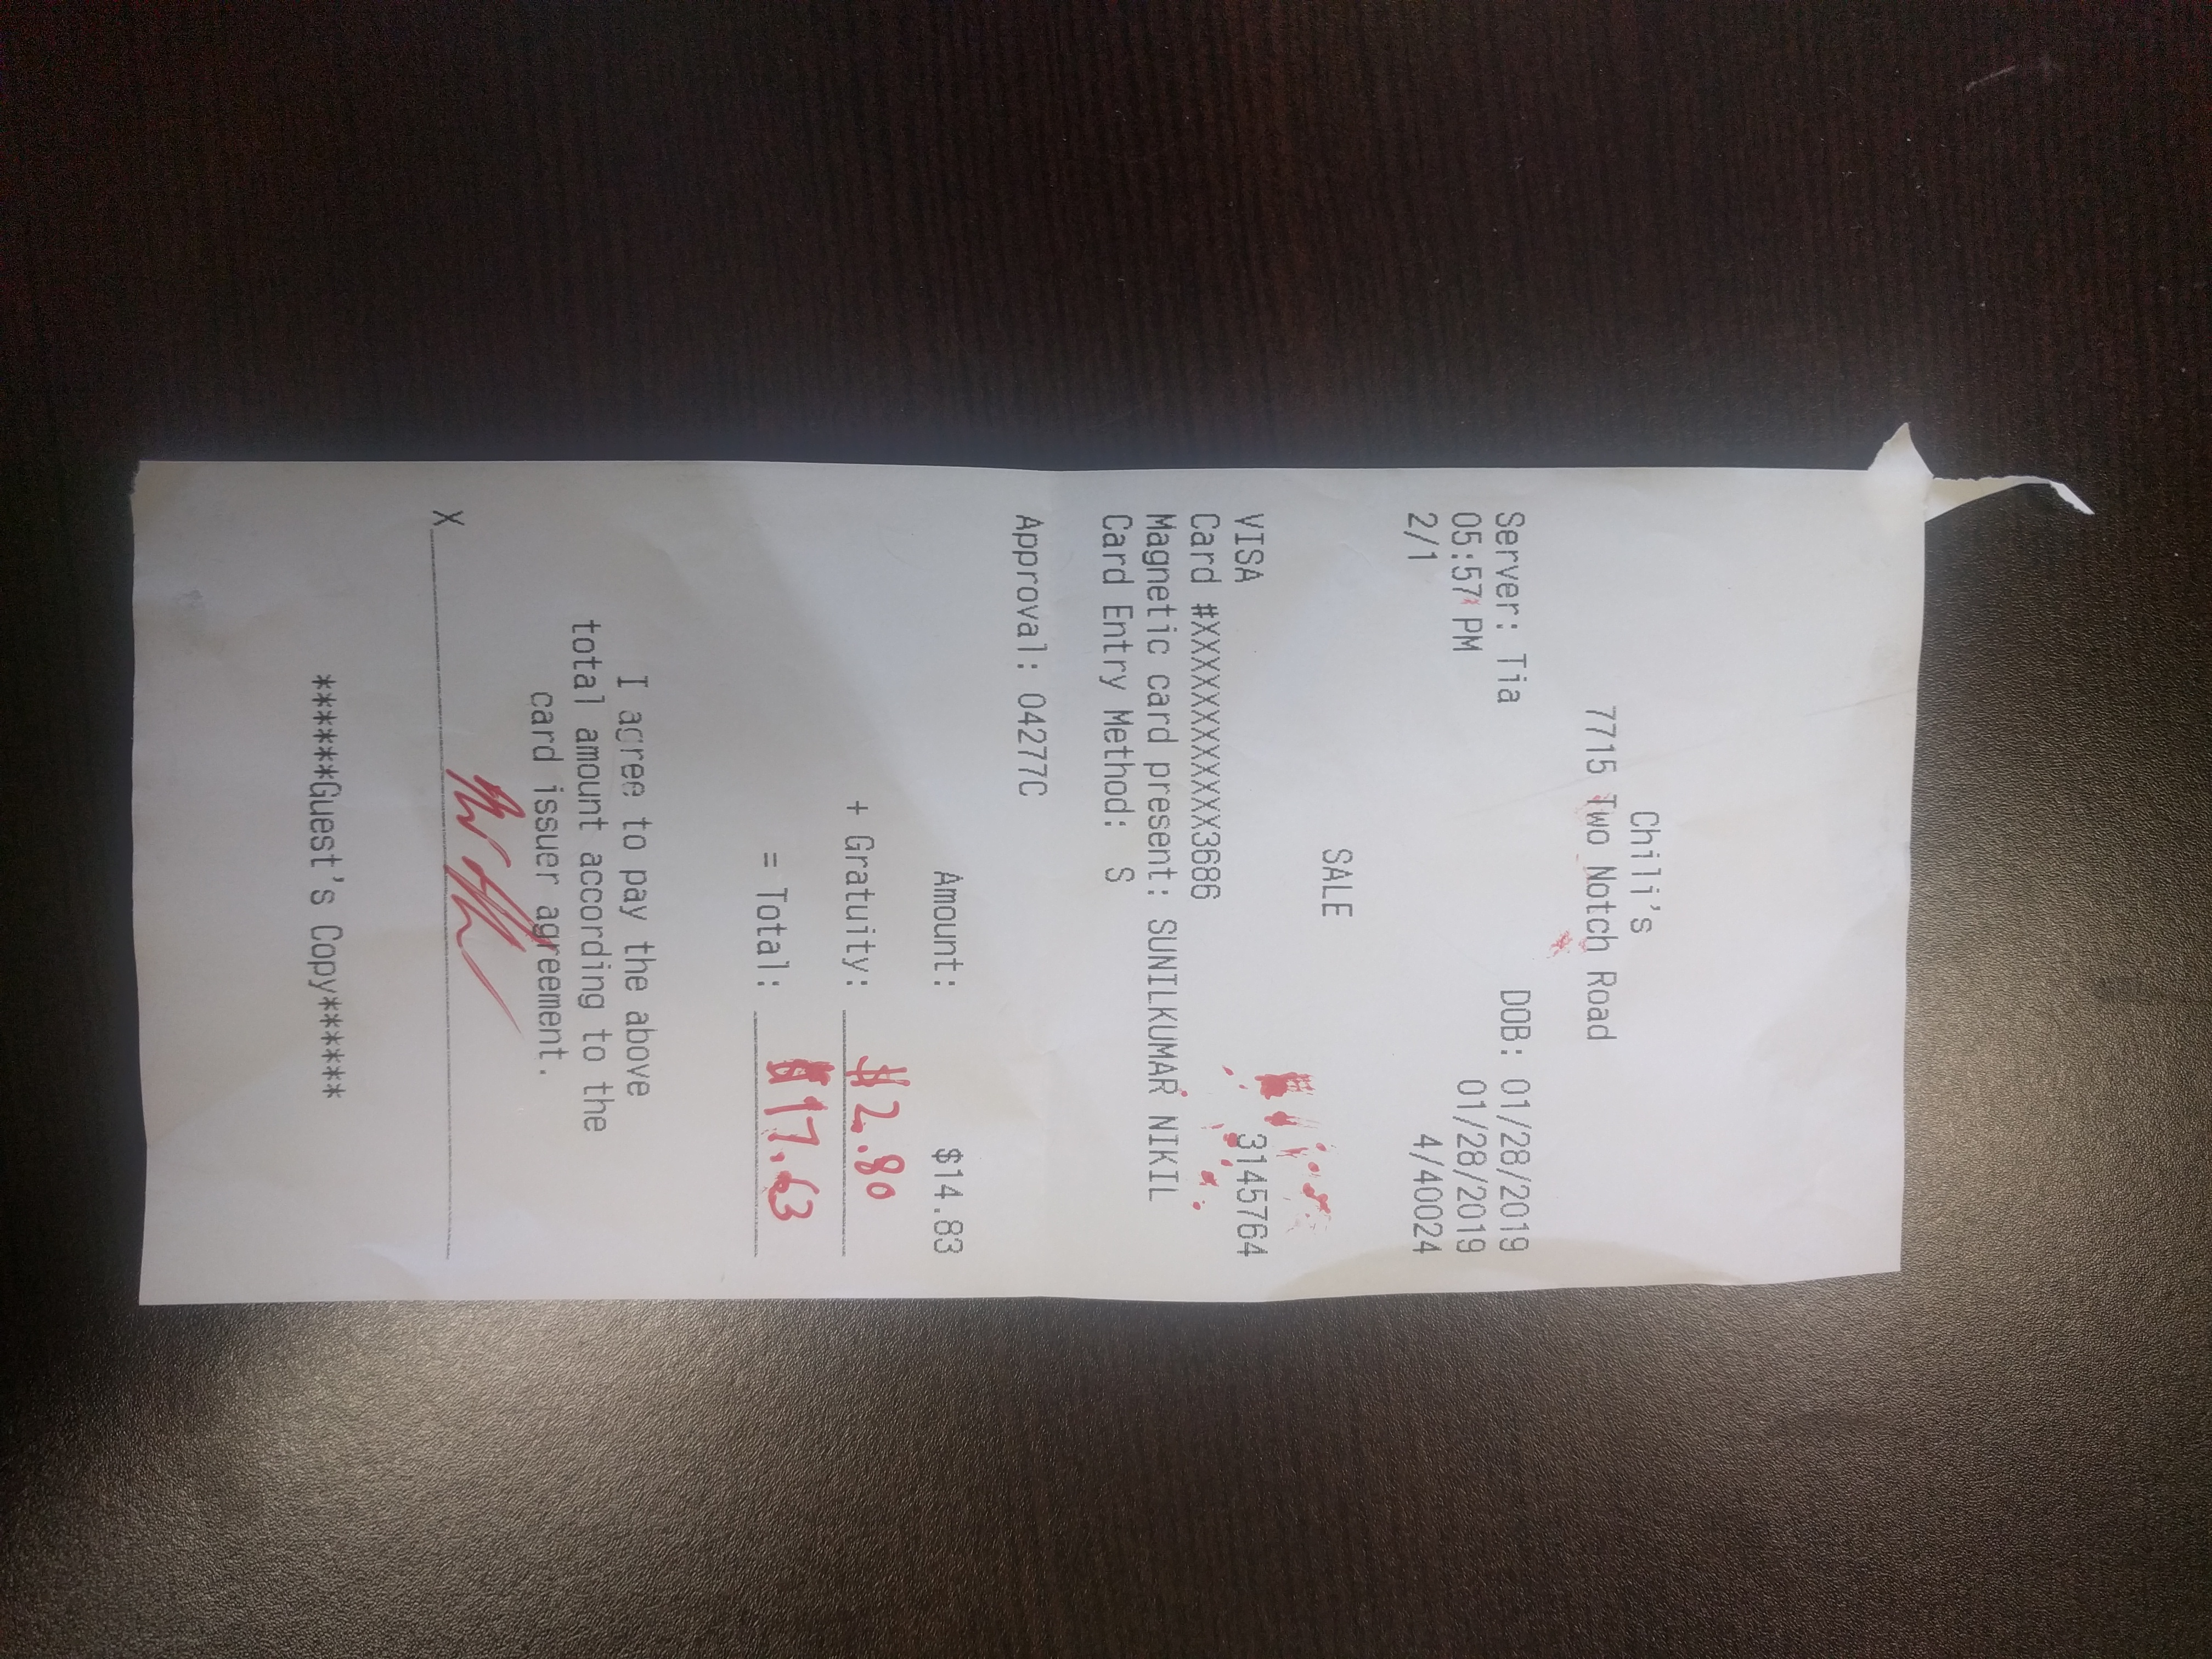 Chili's
7715 Two Notch Road
Server: Tia DOB: 01/28/2019
05:57 PM 01/28/2019
2/1 4/40024
SALE
VISA 3145764
Card #XXXXXXXXXXXX3686
Magnetic card present: SUNILKUMAR NIKIL
Card Entry Method: S
Approval: 04277C
Amount: $14.83
+ Gratuity: $2.80
= Total: $17.63
I agree to pay the above
total amount according to the
card issuer agreement.
X
******Guest's Copy******